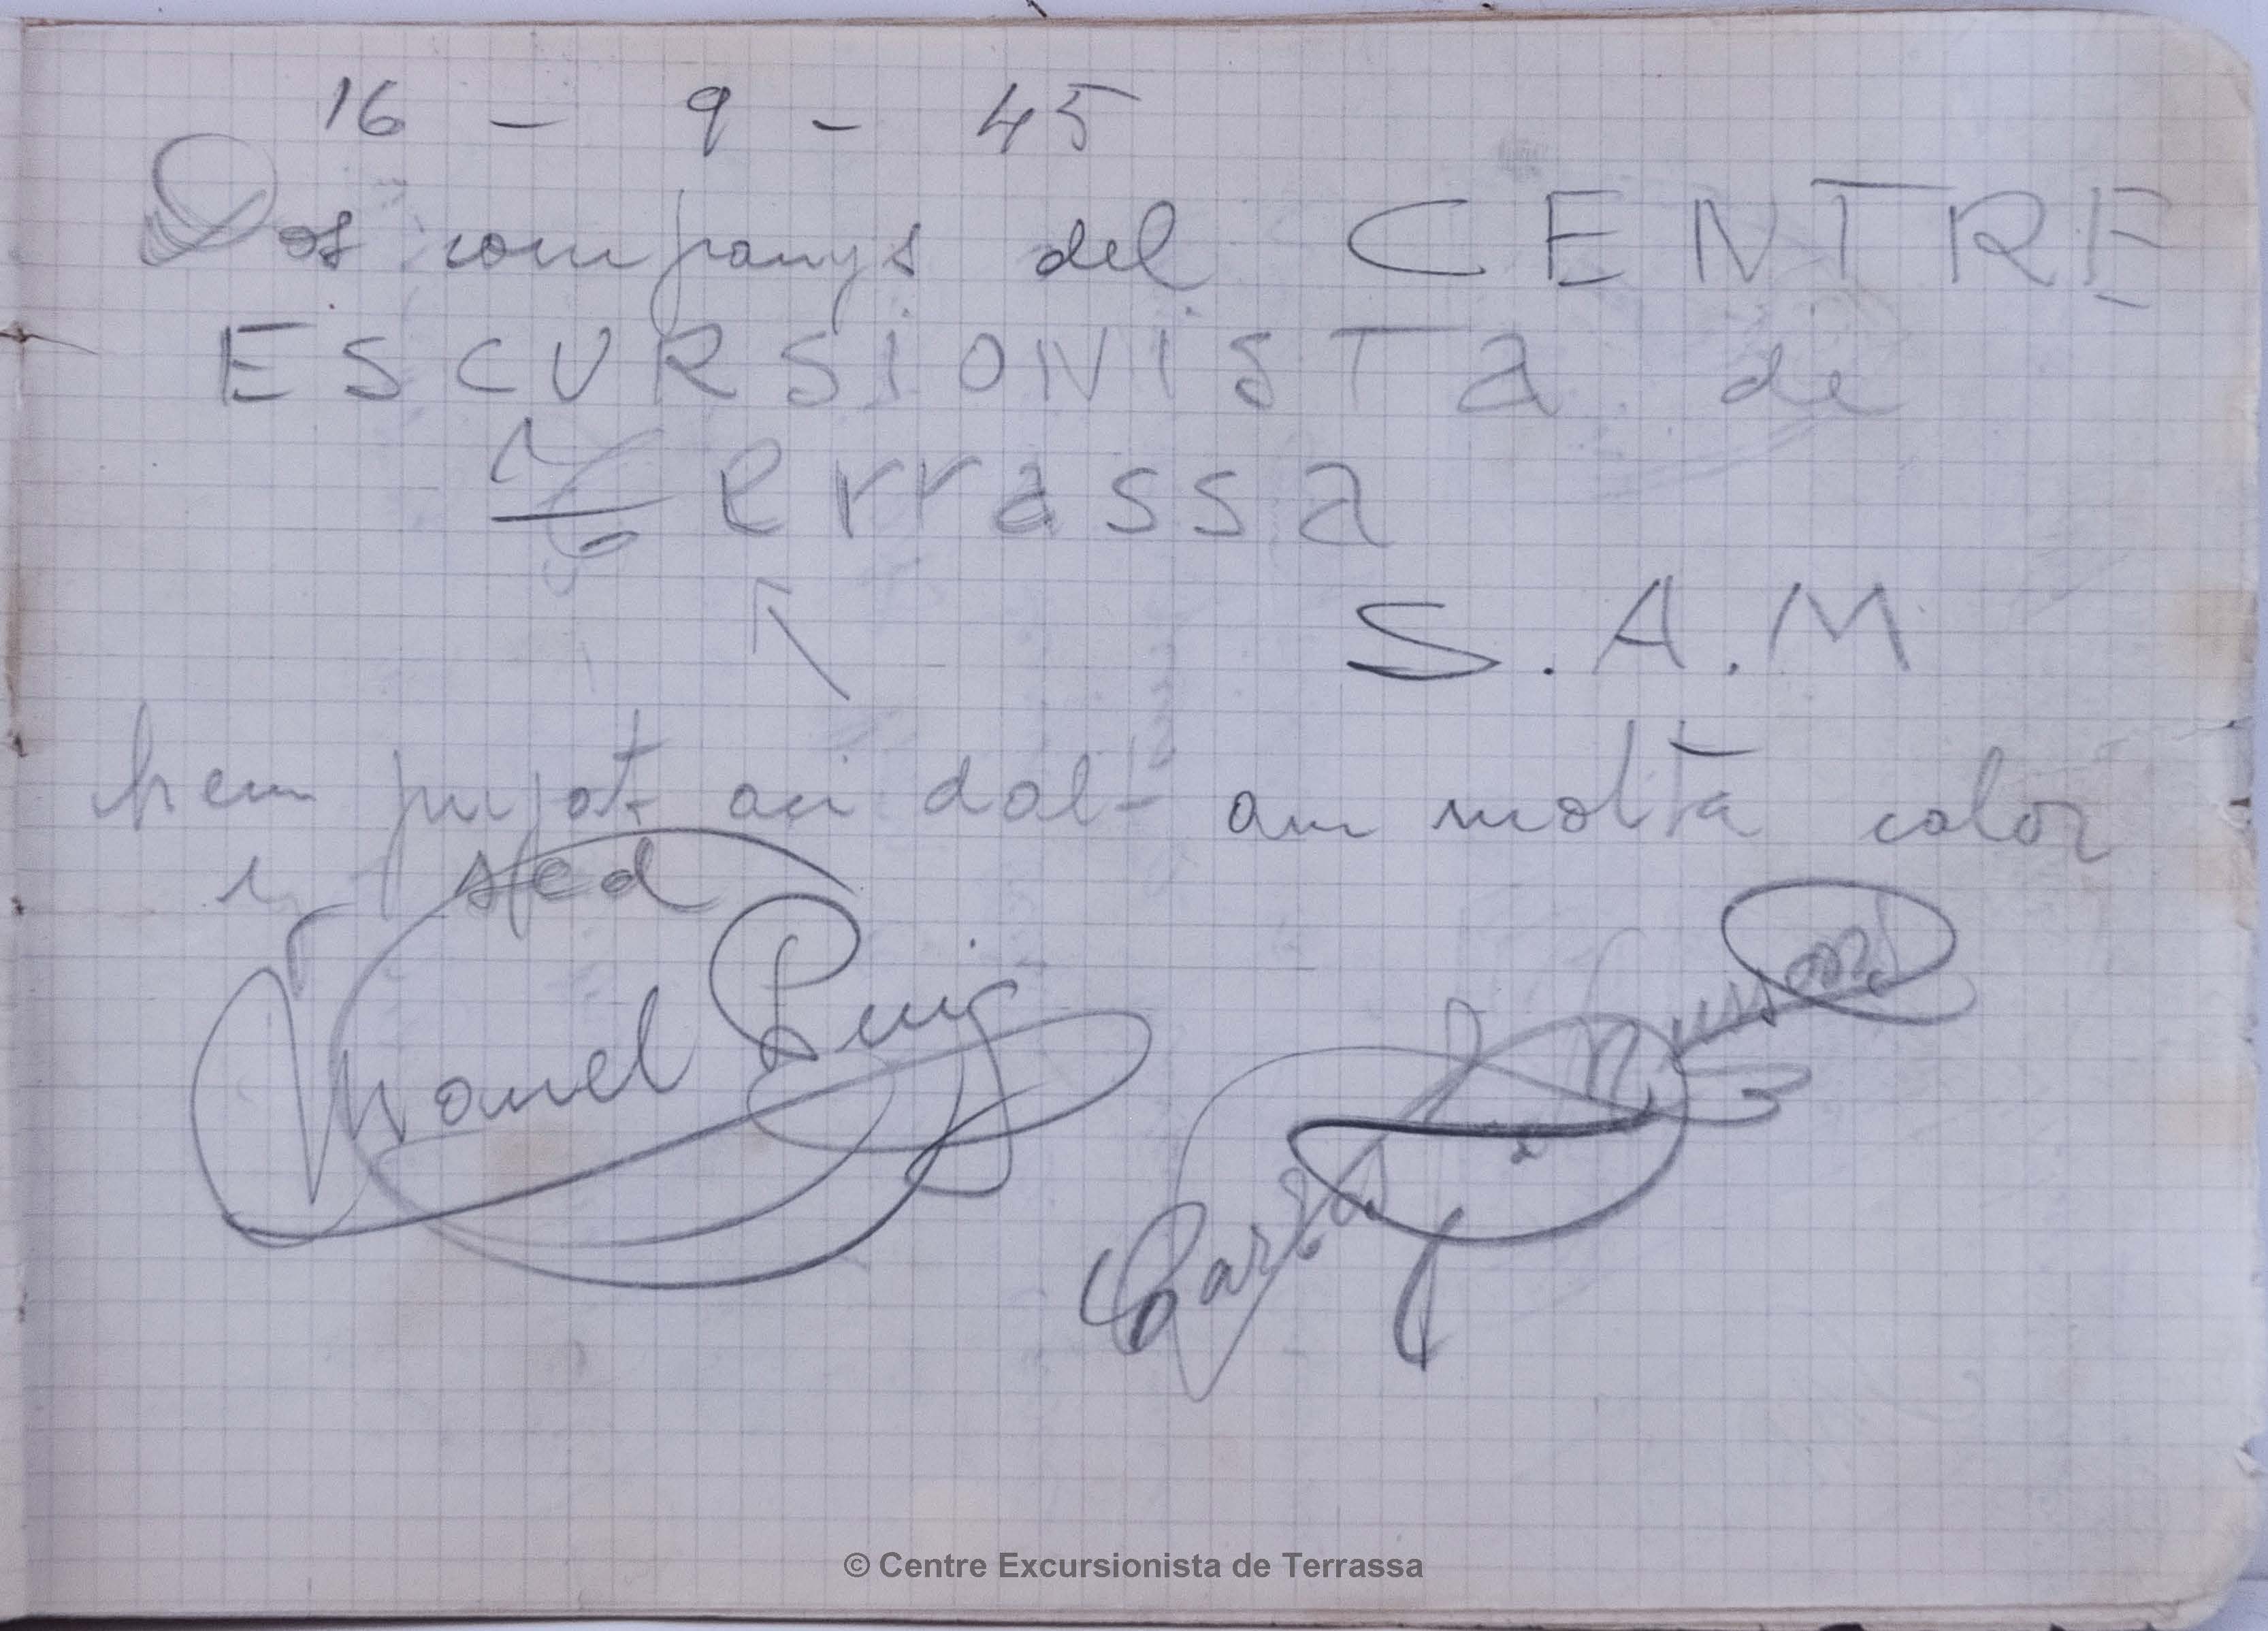 16 - 9 - 45
Dos companys del CENTRE
ESCURSiONiSTa de
Terrassa
S.A.M
hem pujat aci dalt am molta calor
i sed
Manel Puig
© Centre Excursionista de Terrassa